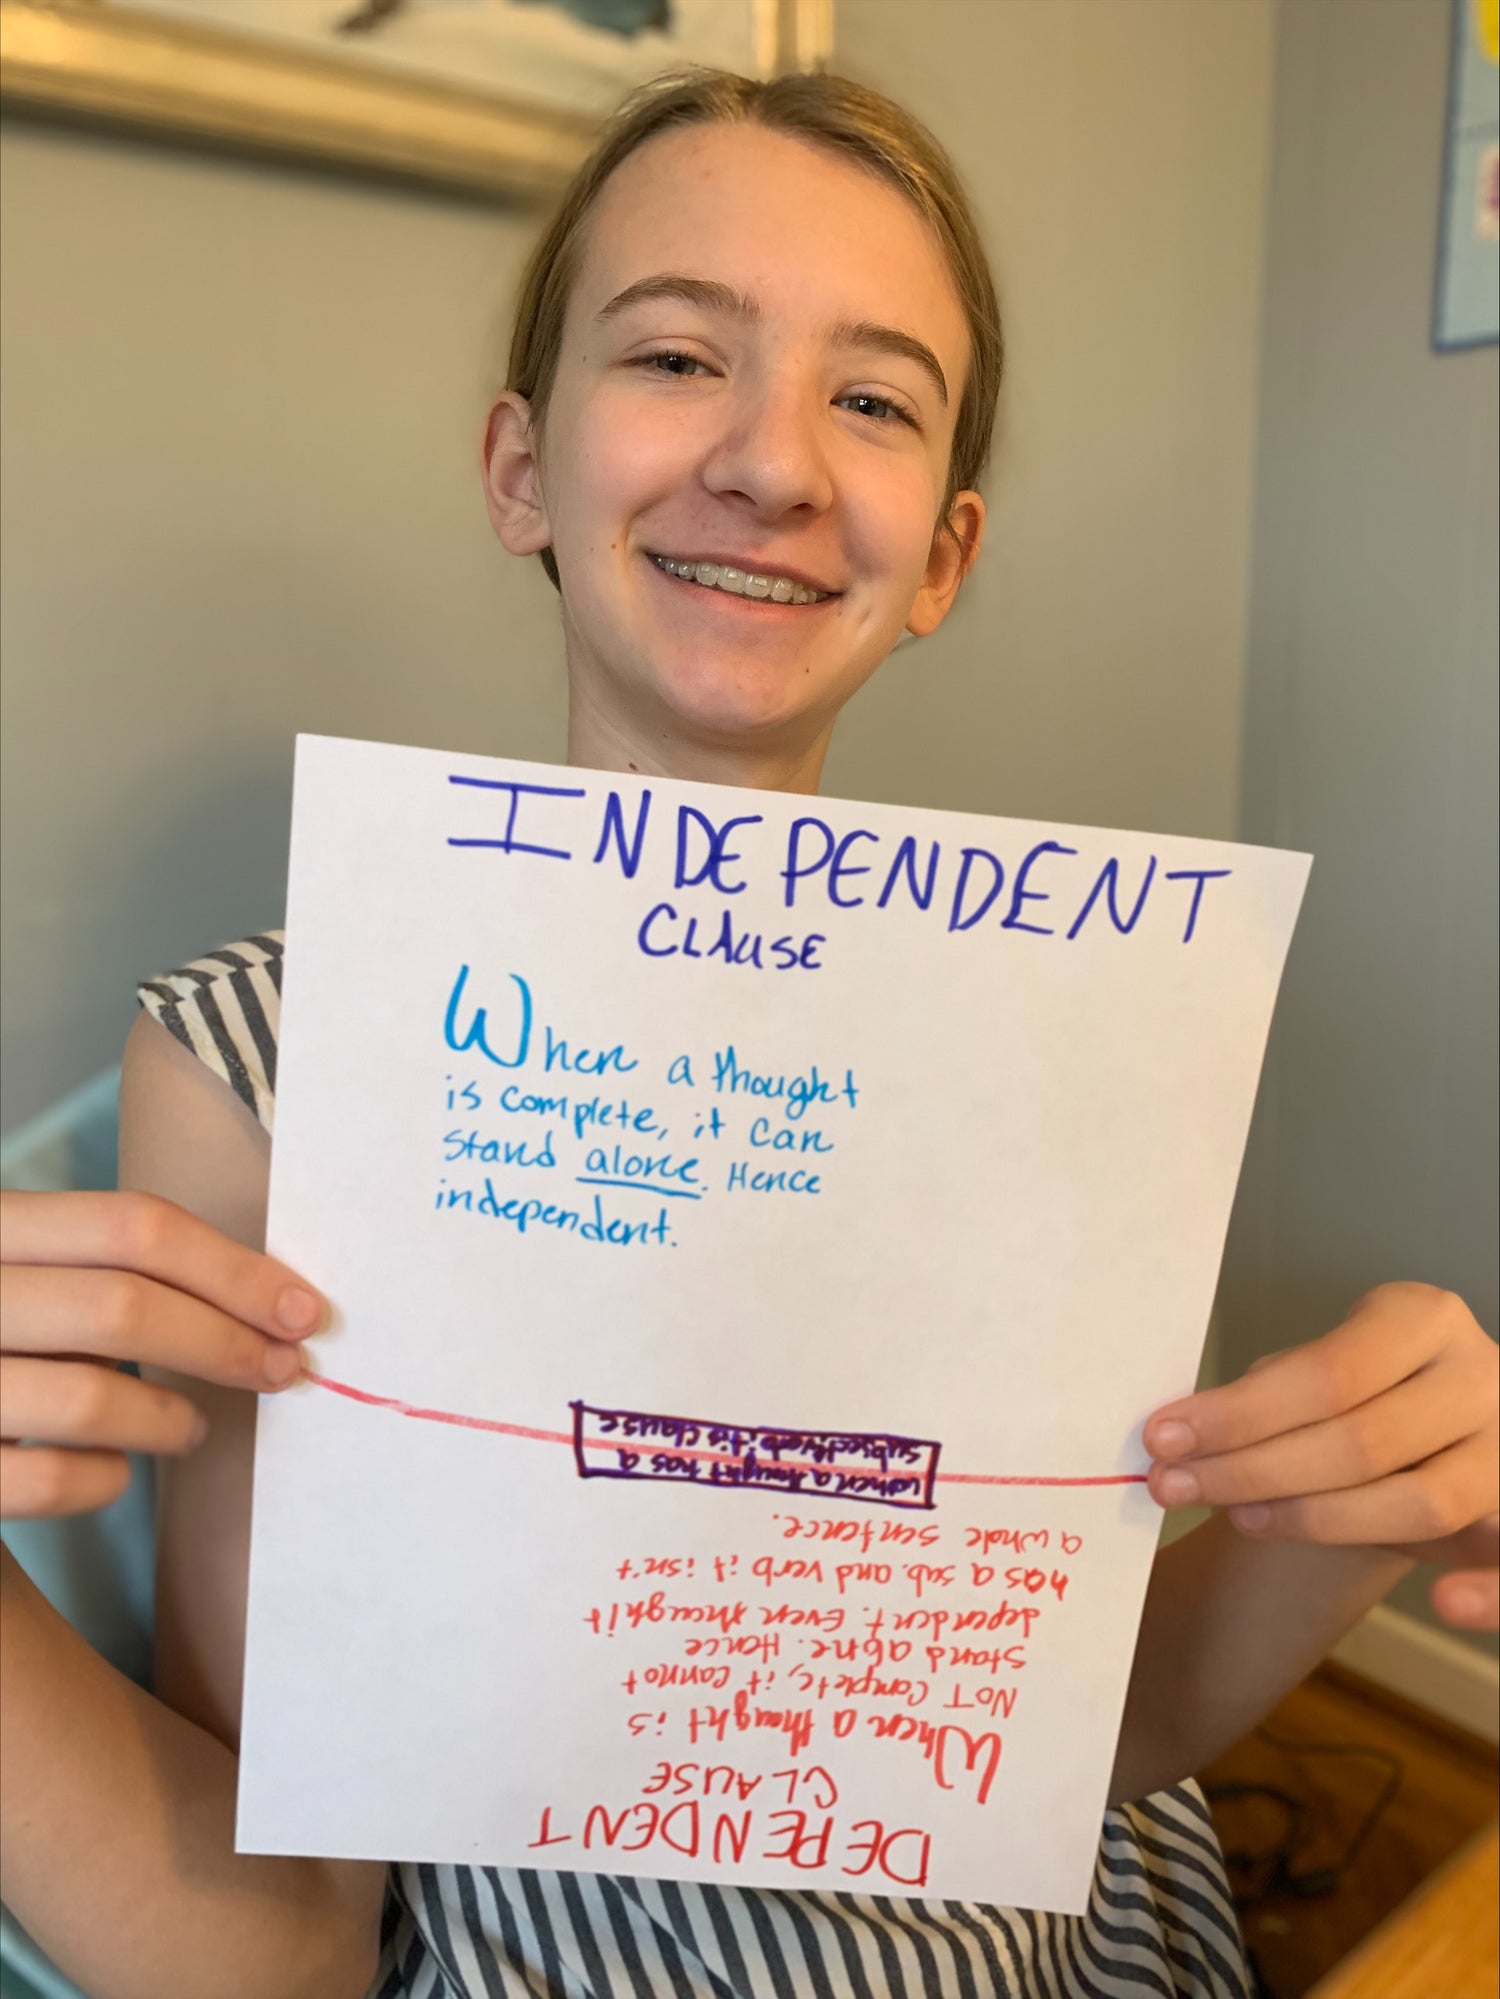 INDEPENDENT
CLAUSE
When a thought
is complete, it can
stand alone. Hence
independent.
DEPENDENT
CLAUSE
When a thought is
NOT complete, it cannot
stand alone. Hence
dependent. Even though it
has a sub. and verb it isn't
a whole sentence.
when a thought has a
subject/verb, it is clause